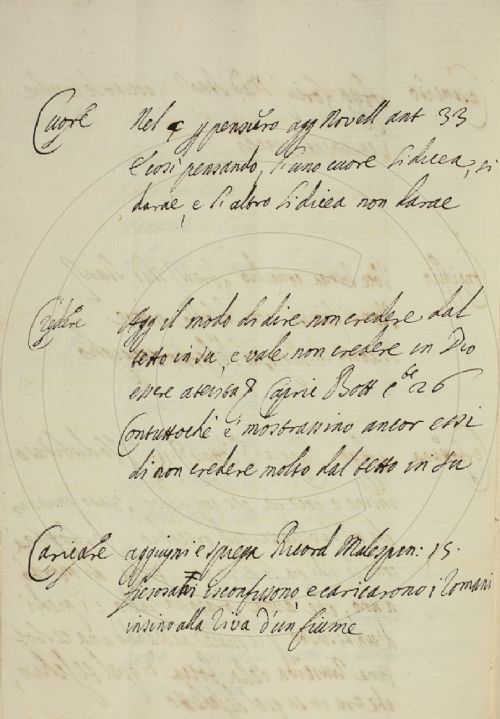 Cuore Nel ç pensiero agg Novell ant 33
E così pensando, l'uno cuore li dicea, si
darae, e l'altro li dicea non darae
Credere Agg il modo di dire non credere dal
tetto in su, e vale non credere in Dio
essere ateista Capric Bott 26
Contuttochè e' mostrassino ancor essi
di non credere molto dal tetto in su
Caricare aggiugni e spiega Ricord Malespin: 15.
Fiesolani sconfissono e caricarono i Romani
insino alla riva d'un fiume